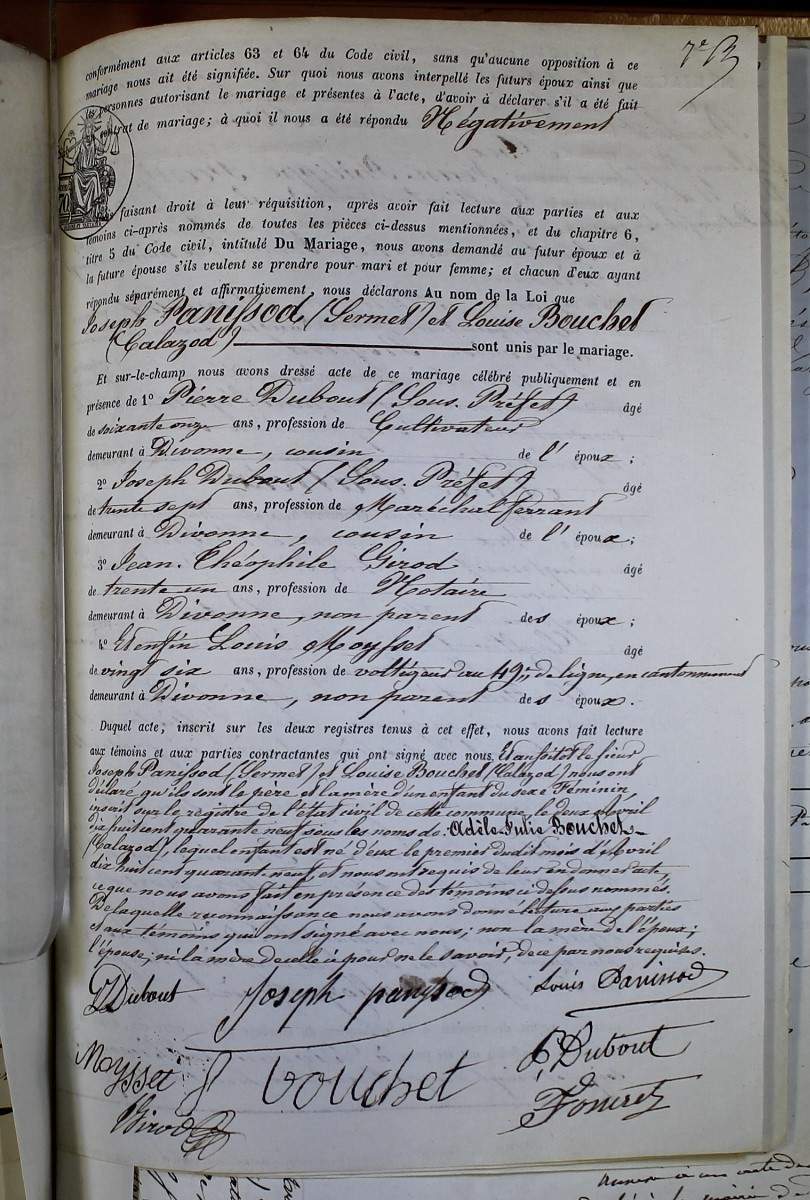 conformément aux articles 63 et 64 du Code civil, sans qu'aucune opposition à ce
mariage nous ait été signifiée. Sur quoi nous avons interpellé les futurs époux ainsi que
les personnes autorisant le mariage et présentes à l'acte, d'avoir à déclarer s'il a été fait
contrat de mariage; à quoi il nous a été répondu Négativement
faisant droit à leur réquisition, après avoir fait lecture aux parties et aux
témoins ci-après nommés de toutes les pièces ci-dessus mentionnées, et du chapitre 6,
titre 5 du Code civil, intitulé Du Mariage, nous avons demandé au futur époux et à
la future épouse s'ils veulent se prendre pour mari et pour femme; et chacun d'eux ayant
répondu séparément et affirmativement, nous déclarons Au nom de la Loi que
Joseph Panissod (Sermet) et Louise Bouchet
(Calazod) sont unis par le mariage.
Et sur-le-champ nous avons dressé acte de ce mariage célébré publiquement et en
présence de 1º Pierre Dubout (Sous-Préfet) âgé
de soixante onze ans, profession de Cultivateur
demeurant à Divonne, cousin de l'époux;
2º Joseph Dubout (Sous-Préfet) âgé
de trente sept ans, profession de Maréchal ferrant
demeurant à Divonne, cousin de l'époux;
3º Jean-Théophile Girod âgé
de trente un ans, profession de Notaire
demeurant à Divonne, non parent des époux;
4º Et enfin Louis Moysset âgé
de vingt six ans, profession de voltigeur au 49e de ligne, en cantonnement
demeurant à Divonne, non parent des époux.
Duquel acte, inscrit sur les deux registres tenus à cet effet, nous avons fait lecture
aux témoins et aux parties contractantes qui ont signé avec nous Et aussitôt le sieur
Joseph Panissod (Sermet) et Louise Bouchet (Calazod) nous ont
déclaré qu'ils sont le père et la mère d'un enfant du sexe Féminin,
inscrit sur le registre de l'état civil de cette commune le deux Avril
dix huit cent quarante neuf sous les noms de: Adèle-Julie Bouchet
(Calazod), lequel enfant est né d'eux le premier dudit mois d'Avril
dix huit cent quarante neuf, et nous ont requis de leur en donner acte,
ce que nous avons fait en présence des témoins ci dessus nommés.
De laquelle reconnaissance nous avons donné lecture aux parties
et aux témoins qui ont signé avec nous; non la mère de l'époux;
l'épouse; ni la mère de celle-ci pour ne le savoir, de ce par nous requises.
Dubout Joseph panissod Louis Panissod
Moysset bouchet P. Dubout
Girod